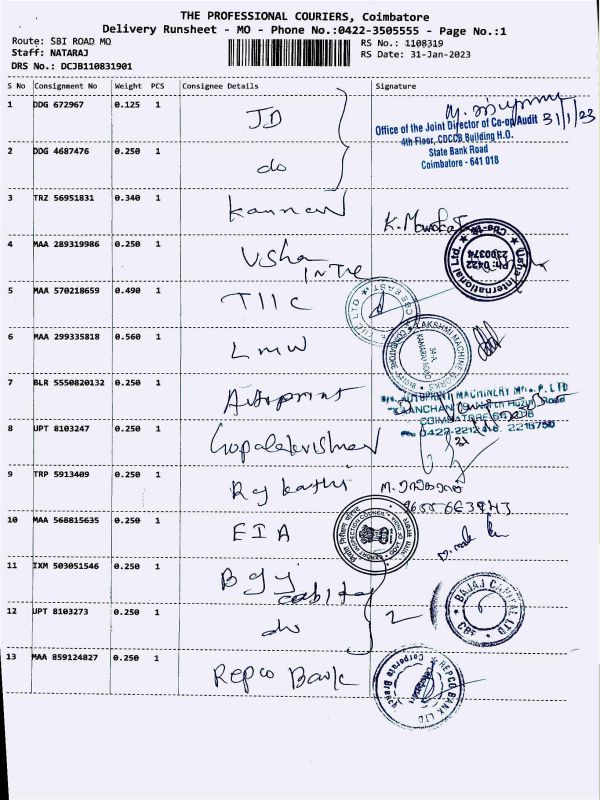 THE PROFESSIONAL COURIERS, Coimbatore
Delivery Runsheet - MO - Phone No.:0422-3505555 - Page No.:1
Route: SBI ROAD MO
RS No.: 1108319
Staff: NATARAJ
RS Date: 31-Jan-2023
DRS No.: DCJB110831901
S No Consignment No Weight PCS Consignee Details Signature
1 DDG 672967 0.125 1 JD
31/1/23
Office of the Joint Director of Co-op Audit
4th Floor, CDCCB Building H.O.
State Bank Road
Coimbatore - 641 018
2 DDG 4687476 0.250 1 do
3 TRZ 56951831 0.340 1 Kannan
4 MAA 289319986 0.250 1 Usha
Usha International Ltd.
Ph: 0422
2300374
5 MAA 570218659 0.490 1 TIIC
6 MAA 299335818 0.560 1 LMW
LAKSHMI MACHINE WORKS
34-A,
KAMARAJ ROAD
COIMBATORE
7 BLR 5550820132 0.250 1 Autoprint
AUTOPRINT MACHINERY P. LTD
COIMBATORE
8 UPT 8103247 0.250 1 Gopalakrishnan
9 TRP 5913409 0.250 1 Raj
10 MAA 568815635 0.250 1 EIA
11 IXM 503051546 0.250 1
BAJAJ CAPITAL LTD
CBE
12 UPT 8103273 0.250 1 do
2
13 MAA 859124827 0.250 1 Repco Bank
REPCO BANK LTD
Corporate